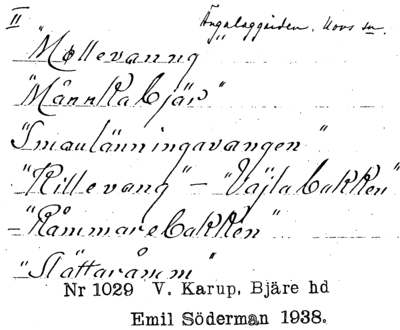 II
Ängalaggården. Hovs sn.
"Møllevanng"
"Männkabjär"
"Smaulänningavangen"
"Killevang" – "Väjlabakken"
– "Råmmarebakken"
"Slättaråmm"
Nr 1029 V. Karup, Bjäre hd
Emil Söderman 1938.